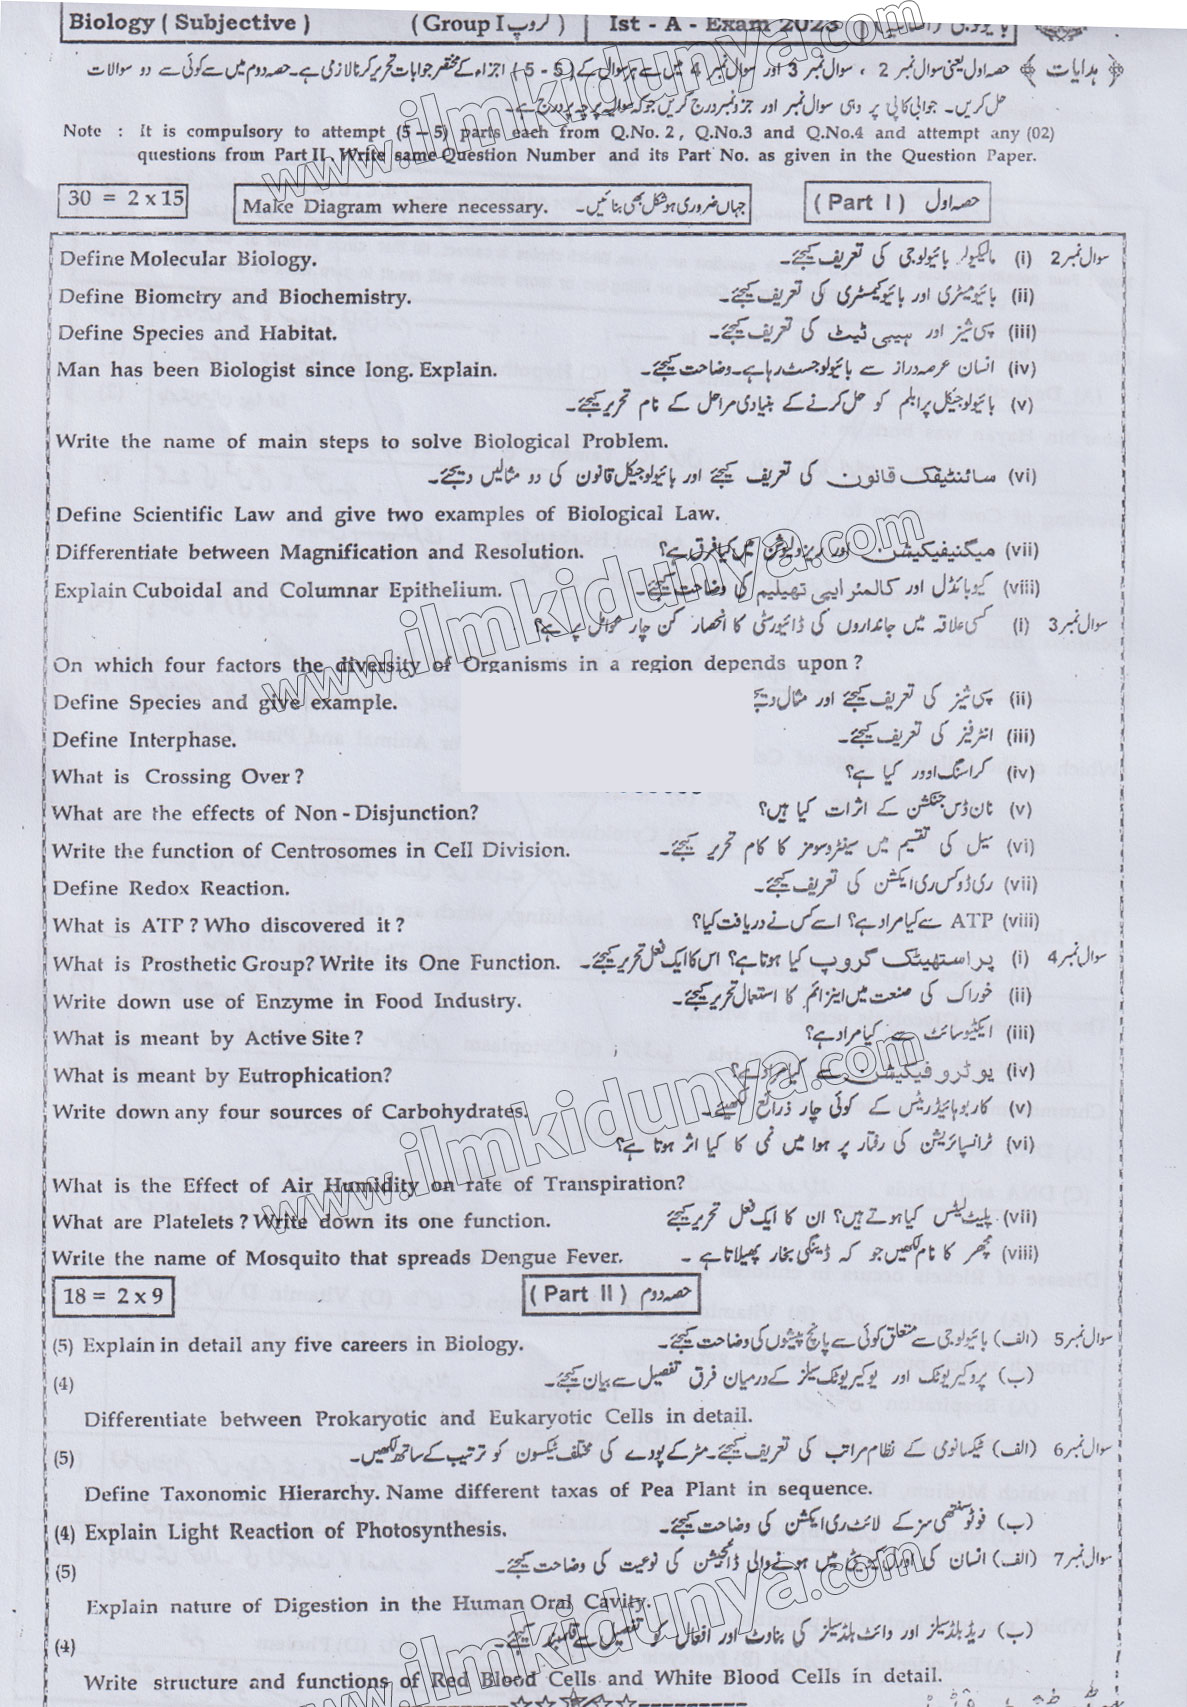 Biology ( Subjective ) (Group I گروپ ) Ist - A - Exam 2023
﴿ ہدایات ﴾ حصہ اول یعنی سوال نمبر 2 ، سوال نمبر 3 اور سوال نمبر 4 میں سے ہر سوال کے ( 5 - 5 ) اجزاء کے مختصر جوابات تحریر کرنا لازمی ہے۔ حصہ دوم میں سے کوئی سے دو سوالات
حل کریں۔ جوابی کاپی پر وہی سوال نمبر اور جزو نمبر درج کریں جو کہ سوالیہ پرچہ پر درج ہے۔
Note : It is compulsory to attempt (5 – 5) parts each from Q.No. 2 , Q.No.3 and Q.No.4 and attempt any (02)
questions from Part II . Write same Question Number and its Part No. as given in the Question Paper.
30 = 2 x 15 Make Diagram where necessary. جہاں ضروری ہو شکل بھی بنائیں۔ ( Part I ) حصہ اول
Define Molecular Biology. سوال نمبر 2 (i) مالیکیولر بائیولوجی کی تعریف کیجئے۔
Define Biometry and Biochemistry. (ii) بائیومیٹری اور بائیوکیمسٹری کی تعریف کیجئے۔
Define Species and Habitat. (iii) سپی شیز اور ہیبی ٹیٹ کی تعریف کیجئے۔
Man has been Biologist since long. Explain. (iv) انسان عرصہ دراز سے بائیولوجسٹ رہا ہے۔ وضاحت کیجئے۔
(v) بائیولوجیکل پرابلم کو حل کرنے کے بنیادی مراحل کے نام تحریر کیجئے۔
Write the name of main steps to solve Biological Problem.
(vi) سائنٹیفک قانون کی تعریف کیجئے اور بائیولوجیکل قانون کی دو مثالیں دیجئے۔
Define Scientific Law and give two examples of Biological Law.
Differentiate between Magnification and Resolution. (vii) میگنیفیکیشن اور ریزولیوشن میں کیا فرق ہے؟
Explain Cuboidal and Columnar Epithelium. (viii) کیوبائڈل اور کالمنر ایپی تھیلیم کی وضاحت کیجئے۔
سوال نمبر 3 (i) کسی علاقہ میں جانداروں کی ڈائیورسٹی کا انحصار کن چار عوامل پر ہے؟
On which four factors the diversity of Organisms in a region depends upon ?
Define Species and give example. (ii) سپی شیز کی تعریف کیجئے اور مثال
Define Interphase. (iii) انٹرفیز کی تعریف کیجئے۔
What is Crossing Over ? (iv) کراسنگ اوور کیا ہے؟
What are the effects of Non - Disjunction? (v) نان ڈس جنکشن کے اثرات کیا ہیں؟
Write the function of Centrosomes in Cell Division. (vi) سیل کی تقسیم میں سینٹروسومز کا کام تحریر کیجئے۔
Define Redox Reaction. (vii) ری ڈوکس ری ایکشن کی تعریف کیجئے۔
What is ATP ? Who discovered it ? (viii) ATP سے کیا مراد ہے؟ اسے کس نے دریافت کیا؟
What is Prosthetic Group? Write its One Function. سوال نمبر 4 (i) پراستھیٹک گروپ کیا ہوتا ہے؟ اس کا ایک فعل تحریر کیجئے۔
Write down use of Enzyme in Food Industry. (ii) خوراک کی صنعت میں اینزائم کا استعمال تحریر کیجئے۔
What is meant by Active Site ? (iii) ایکٹیو سائٹ سے کیا مراد ہے؟
What is meant by Eutrophication? (iv) یوٹروفیکیشن سے کیا مراد ہے؟
Write down any four sources of Carbohydrates. (v) کاربوہائیڈریٹس کے کوئی چار ذرائع لکھیئے۔
(vi) ٹرانسپائریشن کی رفتار پر ہوا میں نمی کا کیا اثر ہوتا ہے؟
What is the Effect of Air Humidity on rate of Transpiration?
What are Platelets ? Write down its one function. (vii) پلیٹ لیٹس کیا ہوتے ہیں؟ ان کا ایک فعل تحریر کیجئے
Write the name of Mosquito that spreads Dengue Fever. (viii) مچھر کا نام لکھیں جو کہ ڈینگی بخار پھیلاتا ہے ۔
18 = 2 x 9 ( Part II ) حصہ دوم
(5) Explain in detail any five careers in Biology. سوال نمبر 5 (الف) بائیولوجی سے متعلق کوئی سے پانچ پیشوں کی وضاحت کیجئے۔
(4) (ب) پروکیریوٹک اور یوکیریوٹک سیلز کے درمیان فرق تفصیل سے بیان کیجئے۔
Differentiate between Prokaryotic and Eukaryotic Cells in detail.
(5) سوال نمبر 6 (الف) ٹیکسانومی کے نظام مراتب کی تعریف کیجئے۔ مٹر کے پودے کی مختلف ٹیکسون کو ترتیب کے ساتھ لکھیں۔
Define Taxonomic Hierarchy. Name different taxas of Pea Plant in sequence.
(4) Explain Light Reaction of Photosynthesis. (ب) فوٹوسنتھی سز کے لائٹ ری ایکشن کی وضاحت کیجئے۔
(5) سوال نمبر 7 (الف) انسان کی اورل کیویٹی میں ہونے والی ڈائجیشن کی نوعیت کی وضاحت کیجئے۔
Explain nature of Digestion in the Human Oral Cavity.
(4) (ب) ریڈ بلڈ سیلز اور وائٹ بلڈ سیلز کی بناوٹ اور افعال کو تفصیل سے قلمبند کیجئے۔
Write structure and functions of Red Blood Cells and White Blood Cells in detail.
www.ilmkidunya.com
www.ilmkidunya.com
www.ilmkidunya.com
www.ilmkidunya.com